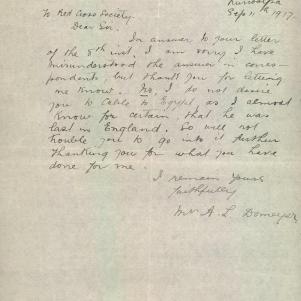 Sep 11th 1917.
To Red Cross Society.
Dear Sir.
In answer to your letter
of the 8th inst. I am sorry I have
misunderstood the answer in corres-
pondents, but thank you for letting
me know. No, I do not desire
you to cable to Egypt, as I almost
know for certain, that he was
last in England. So will not
trouble you to go into it further
Thanking you for what you have
done for me.
I remain yours
faithfully
A. L.